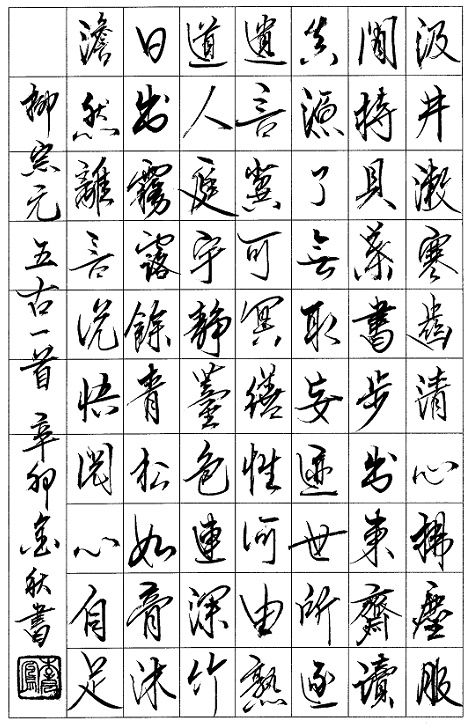 汲井漱寒齒清心拂塵服
閒持貝葉書步出東齋讀
真源了無取妄迹世所逐
遺言冀可冥繕性何由熟
道人庭宇靜薹色連深竹
日出霧露餘青松如膏沐
澹然離言說悟悅心自足
柳宗元 五古一首 辛卯金秋書